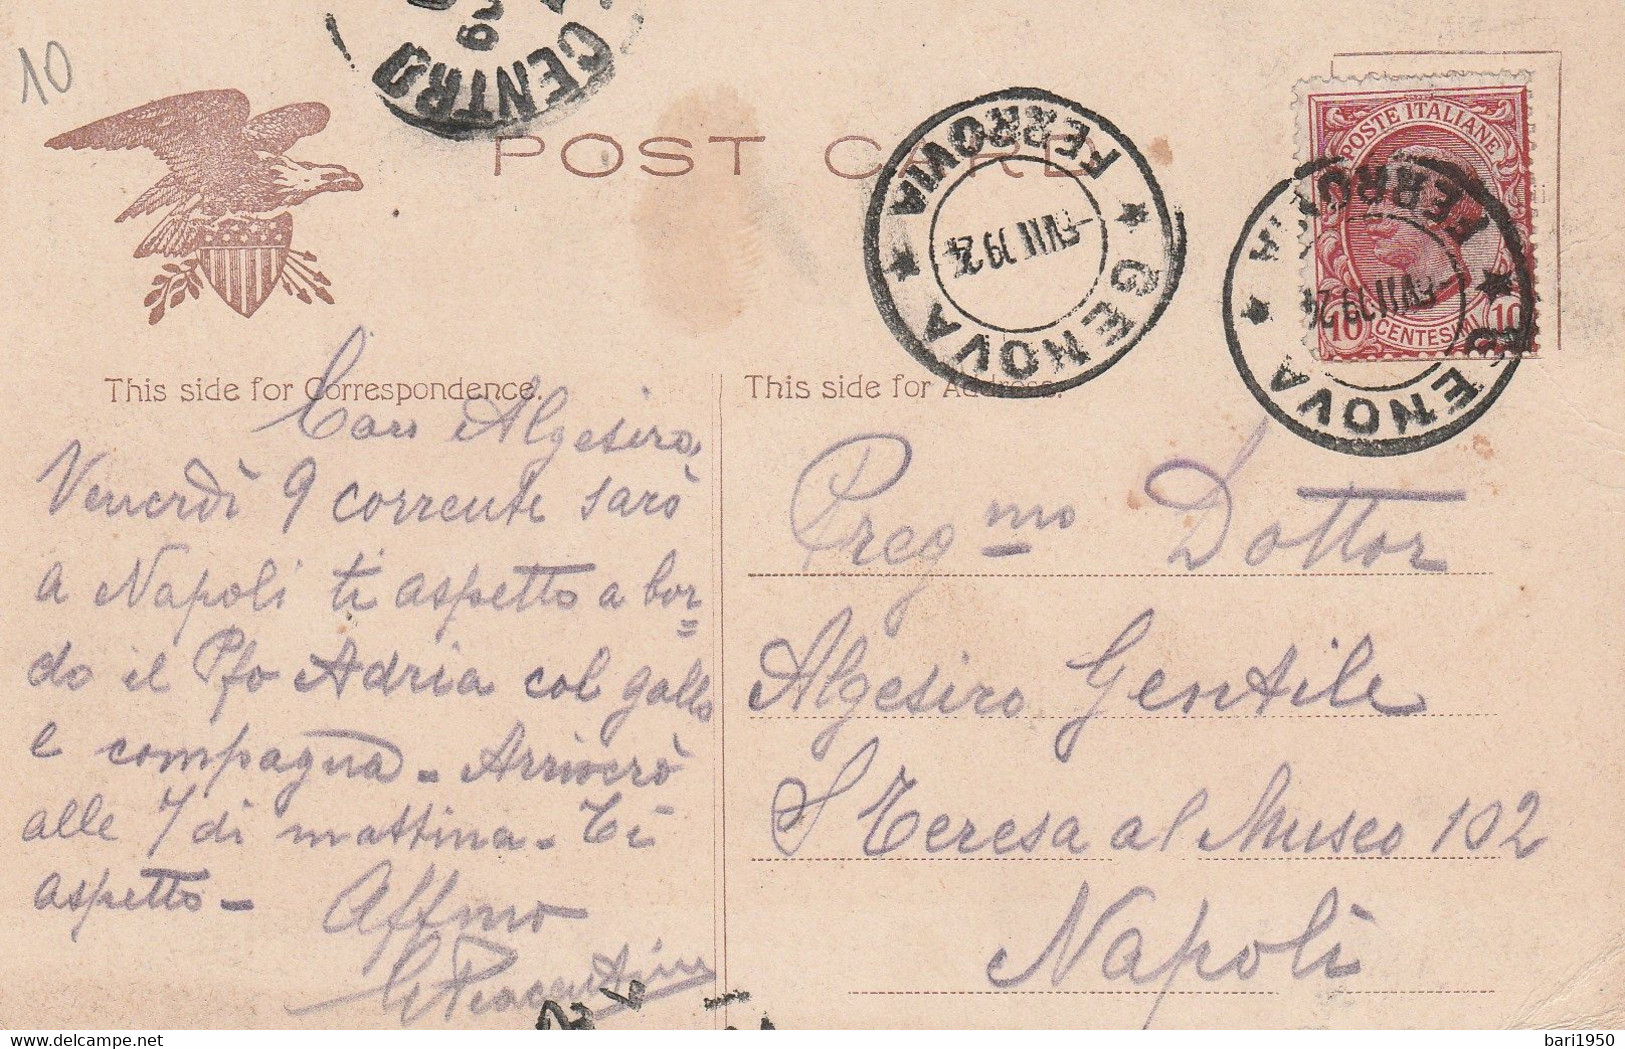 10
CENTRO
POST CARD
FERROVIA
GENOVA
POSTE ITALIANE
10 CENTESIMI 10
FERROVIA
GENOVA
This side for Correspondence.
This side for Address.
Caro Algesiro,
Venerdì 9 corrente sarò
a Napoli ti aspetto a bor=
do il Pfo Adria col gallo
e compagna - Arriverò
alle 7 di mattina - Ti
aspetto - Affmo
Preg mo Dottor
Algesiro Gentile
S Teresa al Museo 102
Napoli
bari1950